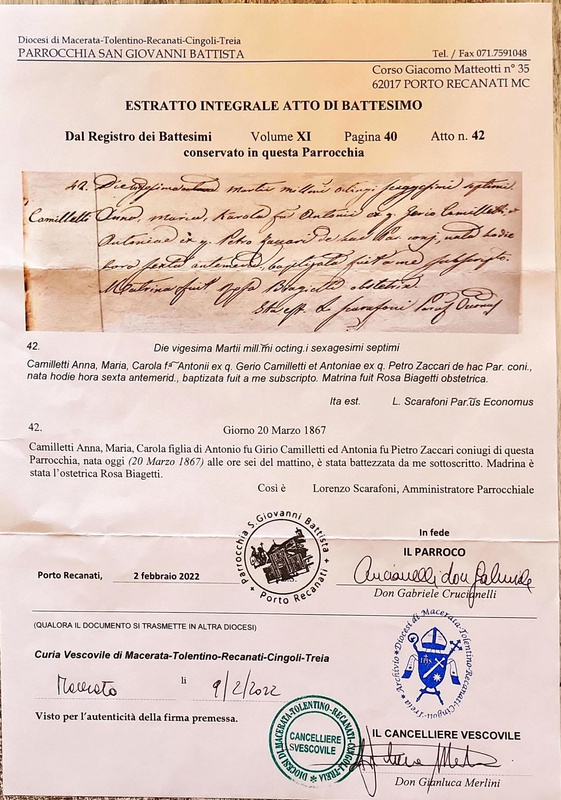 Diocesi di Macerata-Tolentino-Recanati-Cingoli-Treia
PARROCCHIA SAN GIOVANNI BATTISTA Tel. / Fax 071.7591048
Corso Giacomo Matteotti n° 35
62017 PORTO RECANATI MC
ESTRATTO INTEGRALE ATTO DI BATTESIMO
Dal Registro dei Battesimi Volume XI Pagina 40 Atto n. 42
conservato in questa Parrocchia
42. Die vigesima Martii milleni octingi sexagesimi septimi
Camilletti Anna, Maria, Karola fa Antonii ex q. Gerio Camilletti, et
Antoniae ex q. Petro Zaccari de hac Par. conj, nata hodie
hora sexta antemerid., baptizata fuit a me subscripto.
Matrina fuit Rosa Biagetti obstetrica.
Ita est L. Scarafoni
42. Die vigesima Martii mill.mi octing.i sexagesimi septimi
Camilletti Anna, Maria, Carola fa Antonii ex q. Gerio Camilletti et Antoniae ex q. Petro Zaccari de hac Par. coni.,
nata hodie hora sexta antemerid., baptizata fuit a me subscripto. Matrina fuit Rosa Biagetti obstetrica.
Ita est. L. Scarafoni Par.us Economus
42. Giorno 20 Marzo 1867
Camilletti Anna, Maria, Carola figlia di Antonio fu Girio Camilletti ed Antonia fu Pietro Zaccari coniugi di questa
Parrocchia, nata oggi (20 Marzo 1867) alle ore sei del mattino, è stata battezzata da me sottoscritto. Madrina è
stata l'ostetrica Rosa Biagetti.
Così è Lorenzo Scarafoni, Amministratore Parrocchiale
Parrocchia S Giovanni Battista + Porto Recanati +
In fede
IL PARROCO
Porto Recanati, 2 febbraio 2022
Crucianelli don Gabriele
Don Gabriele Crucianelli
(QUALORA IL DOCUMENTO SI TRASMETTE IN ALTRA DIOCESI)
Archivio Diocesi di Macerata-Tolentino-Recanati-Cingoli-Treia
IHS
Curia Vescovile di Macerata-Tolentino-Recanati-Cingoli-Treia
Macerata li 9/2/2022
Visto per l'autenticità della firma premessa.
DIOCESI DI MACERATA-TOLENTINO-RECANATI-CINGOLI-TREIA
CANCELLIERE
VESCOVILE
IL CANCELLIERE VESCOVILE
Don Gianluca Merlini